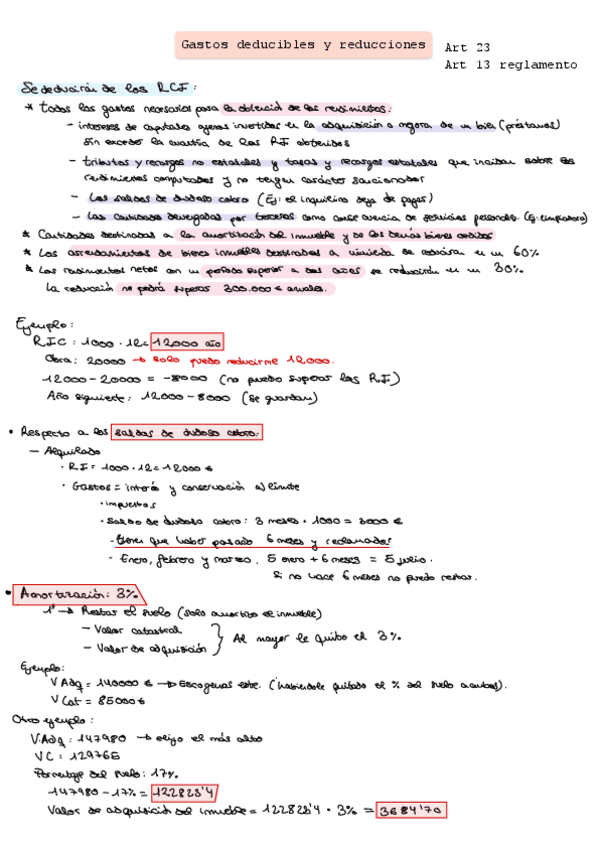 Gastos deducibles y reducciones
Art 23
Art 13 reglamento
Se deducirán de los RCI:
* Todos los gastos necesarios para la obtención de los rendimientos:
- intereses de capitales ajenos invertidos en la adquisición o mejora de un bien (préstamos)
sin exceder la cuantía de los RI obtenidos
- tributos y recargos no estatales y tasas y recargos estatales que incidan sobre los
rendimientos computados y no tengan carácter sancionador
- Los saldos de dudoso cobro (Ej: el inquilino deja de pagar)
- Las cantidades devengadas por terceros como consecuencia de servicios personales. (Ej: limpiadora)
* Cantidades destinadas a la amortización del inmueble y de los demás bienes cedidos
* Los arrendamientos de bienes inmuebles destinados a vivienda se reducirá en un 60%
* Los rendimientos netos con un periodo superior a dos años se reducirán en un 30%.
La reducción no podrá superar 300.000 € anuales.
Ejemplo:
RIC: 1000 · 12 = 12000 año
Obra: 20000 → solo puedo reducirme 12.000.
12000 - 20000 = -8000 (no puedo superar los RI)
Año siguiente: 12000 - 8000 (se guardan)
• Respecto a los saldos de dudoso cobro:
- Alquilado
· RI = 1000 · 12 = 12000 €
· Gastos = interés y conservación al límite
· impuestos
· Saldo de dudoso cobro: 3 meses · 1000 = 3000 €
- tienen que haber pasado 6 meses y reclamados
- Enero, febrero y marzo. 5 enero + 6 meses = 5 julio.
Si no hace 6 meses no puedo restar.
• Amortización: 3%
1º → Restar el suelo (solo amortizo el inmueble)
- Valor catastral
- Valor de adquisición
Al mayor le quito el 3%
Ejemplo:
V Adq = 140000 € → Escogemos este. (habiéndole quitado el % del suelo a ambos).
V Cat = 85000 €
Otro ejemplo:
V.Adq: 147980 → elijo el más alto
VC: 129765
Porcentaje del suelo: 17%
147980 - 17% = 122823'4
Valor de adquisición del inmueble = 122823'4 · 3% = 3684'70